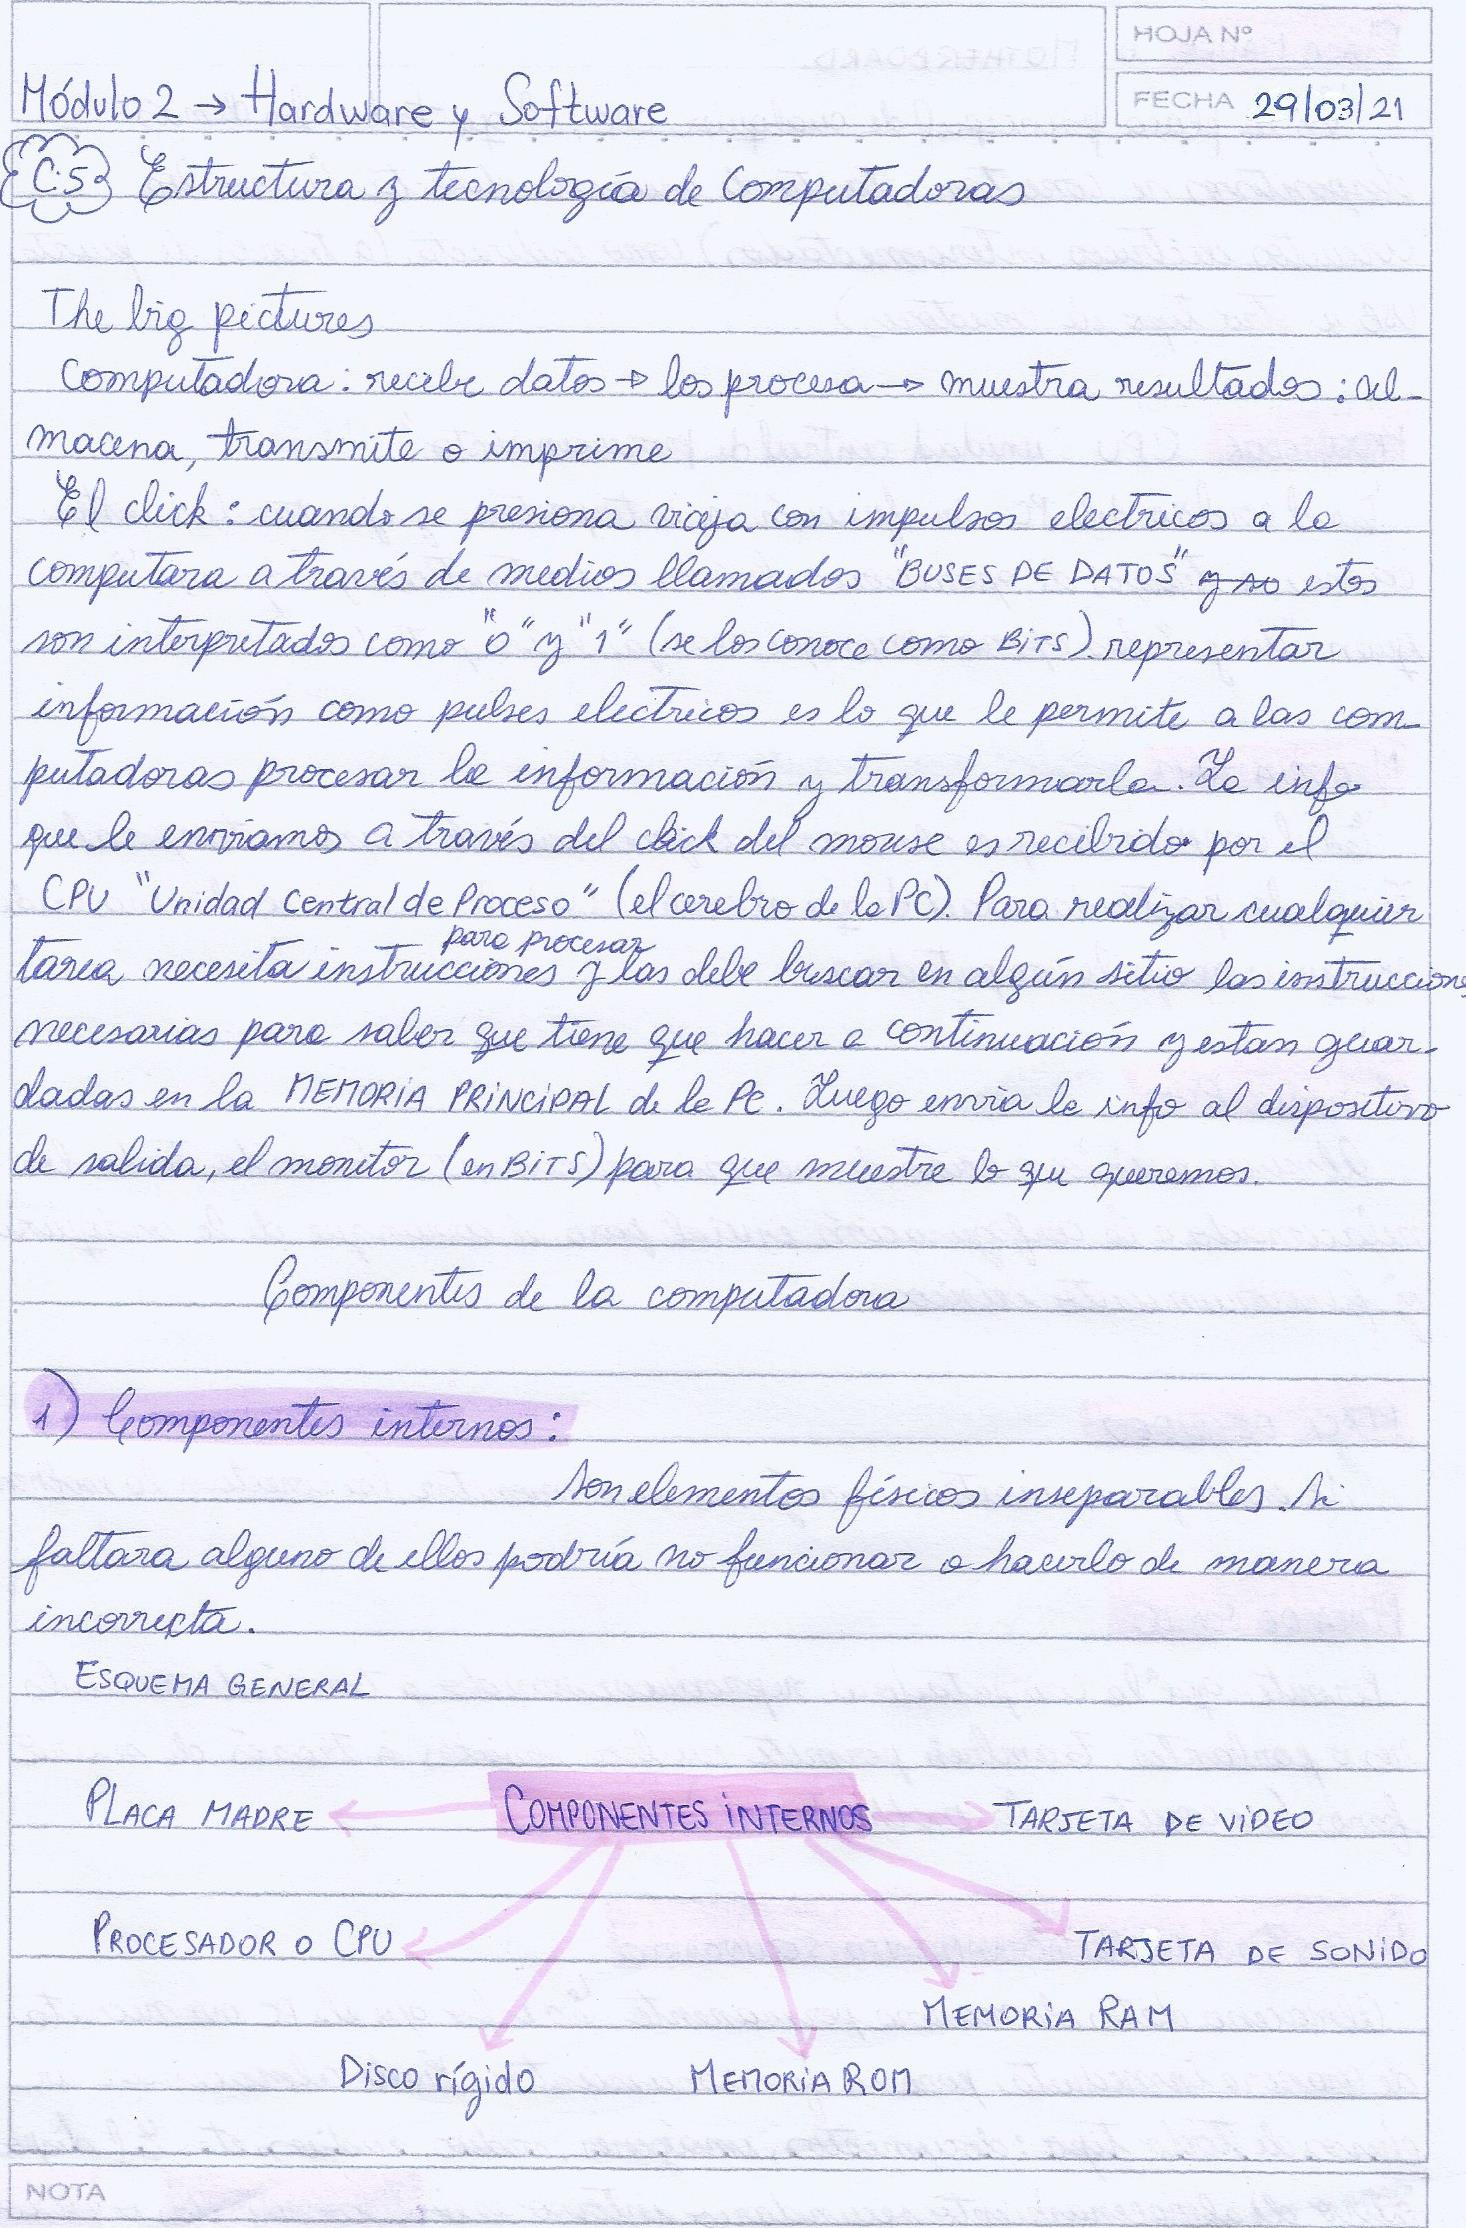 HOJA Nº
Módulo 2 → Hardware y Software
FECHA 29/03/21
C.5 Estructura y tecnología de Computadoras
The big pictures
Computadora: recibe datos → los procesa → muestra resultados: al-
macena, transmite o imprime
El click: cuando se presiona viaja con impulsos electricos a la
computara a través de medios llamados "BUSES DE DATOS" y so estos
son interpretados como "0" y "1" (se los conoce como BiTS). representar
información como pulses electricos es lo que le permite a las com-
putadoras procesar la información y transformarla. La info
que le enviamos a través del click del mouse es recibido por el
CPU "Unidad Central de Proceso" (el cerebro de la PC). Para realizar cualquier
para procesar
tarea necesita instrucciones y las debe buscar en algún sitio las instrucciones
necesarias para saber que tiene que hacer a continuación y estan guar-
dadas en la MEMORIA PRINCIPAL de la PC. Luego envia la info al dispositivo
de salida, el monitor (en BiTS) para que muestre lo que queremos.
Componentes de la computadora
1) Componentes internos:
Son elementos físicos inseparables. Si
faltara alguno de ellos podría no funcionar o hacerlo de manera
incorrecta.
ESQUEMA GENERAL
PLACA MADRE COMPONENTES INTERNOS TARJETA DE VIDEO
PROCESADOR O CPU TARJETA DE SONIDO
MEMORIA RAM
Disco rígido MEMORIA ROM
NOTA